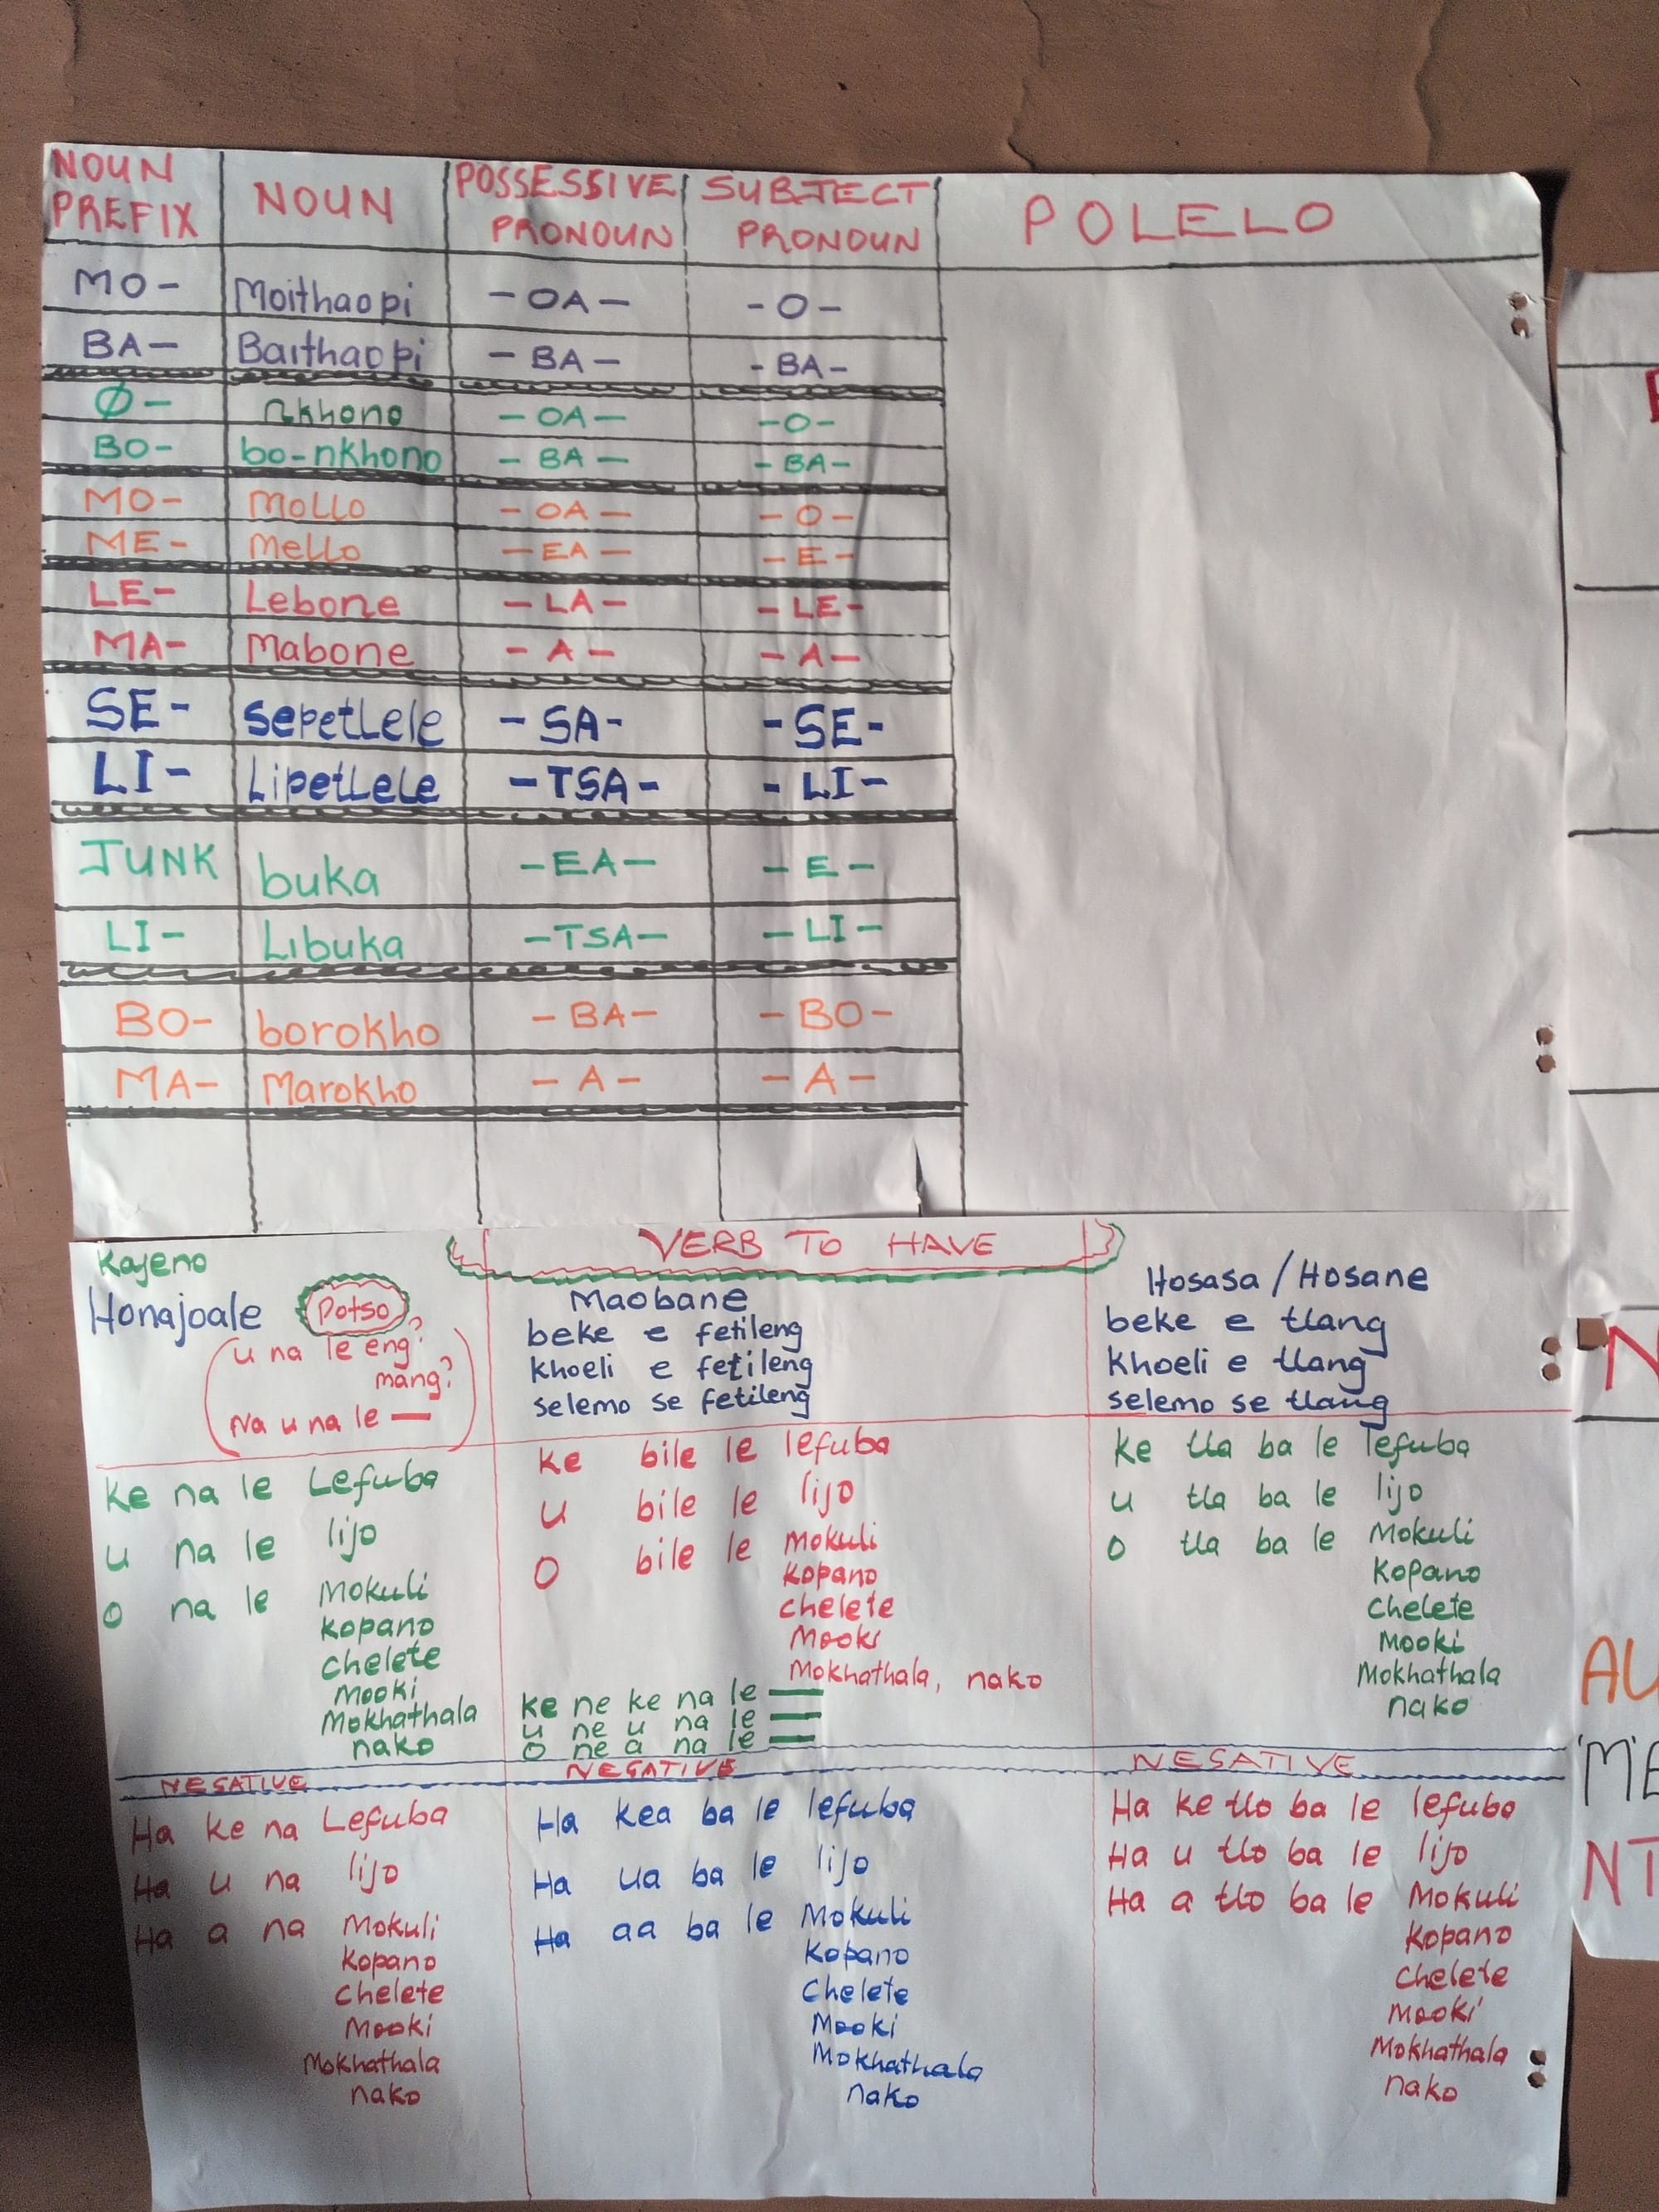 NOUN PREFIX | NOUN | POSSESSIVE PRONOUN | SUBJECT PRONOUN | POLELO
MO- | Moithaopi | -OA- | -O-
BA- | Baithaopi | -BA- | -BA-
Ø- | nkhono | -OA- | -O-
BO- | bo-nkhono | -BA- | -BA-
MO- | Mollo | -OA- | -O-
ME- | Mello | -EA- | -E-
LE- | Lebone | -LA- | -LE-
MA- | Mabone | -A- | -A-
SE- | sepetlele | -SA- | -SE-
LI- | Lipetlele | -TSA- | -LI-
JUNK | buka | -EA- | -E-
LI- | Libuka | -TSA- | -LI-
BO- | borokho | -BA- | -BO-
MA- | Marokho | -A- | -A-
VERB TO HAVE
Kajeno
Honajoale
Potso
(u na le eng?
mang?
Na u na le —)
Ke na le Lefuba
u na le lijo
o na le Mokuli
Kopano
Chelete
Mooki
Mokhathala
nako
NEGATIVE
Ha ke na Lefuba
Ha u na lijo
Ha a na Mokuli
Kopano
Chelete
Mooki
Mokhathala
nako
Maobane
beke e fetileng
khoeli e fetileng
selemo se fetileng
ke bile le lefuba
u bile le lijo
o bile le Mokuli
Kopano
Chelete
Mooki
Mokhathala, nako
ke ne ke na le —
u ne u na le —
o ne a na le —
NEGATIVE
Ha kea ba le lefuba
Ha ua ba le lijo
Ha aa ba le Mokuli
Kopano
Chelete
Mooki
Mokhathala
nako
Hosasa / Hosane
beke e tlang
Khoeli e tlang
selemo se tlang
Ke tla ba le lefuba
u tla ba le lijo
o tla ba le Mokuli
Kopano
Chelete
Mooki
Mokhathala
nako
NEGATIVE
Ha ke tlo ba le lefuba
Ha u tlo ba le lijo
Ha a tlo ba le Mokuli
Kopano
Chelete
Mooki
Mokhathala
nako